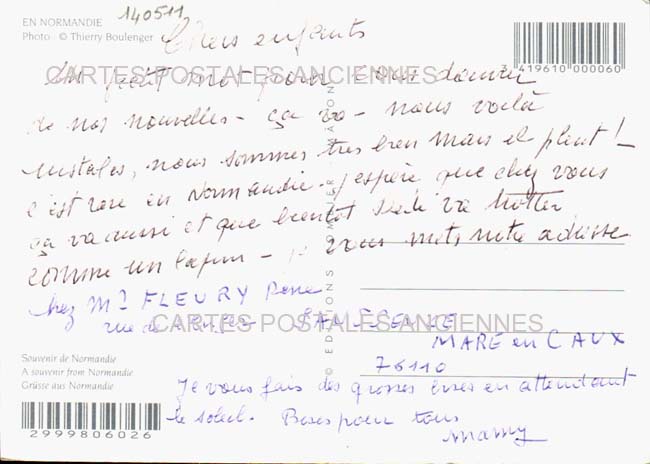 140511
EN NORMANDIE
Photo · © Thierry Boulenger
Chers enfants
3 419610 000060
un petit mot pour vous donner
CARTES POSTALES ANCIENNES
de nos nouvelles - ça va - nous voilà
installés, nous sommes très bien mais il pleut !
c'est rare en Normandie. J'espère que chez vous
ça va aussi et que bientôt va trotter
comme un lapin - je vous mets notre adresse
chez Mr FLEURY
rue de
CARTES POSTALES ANCIENNES
MARE en CAUX
76110
© EDITIONS
Souvenir de Normandie
A souvenir from Normandie
Grüsse aus Normandie
Je vous fais des grosses bises en attendant
le soleil. Bises pour tous
Mamy
2999806026